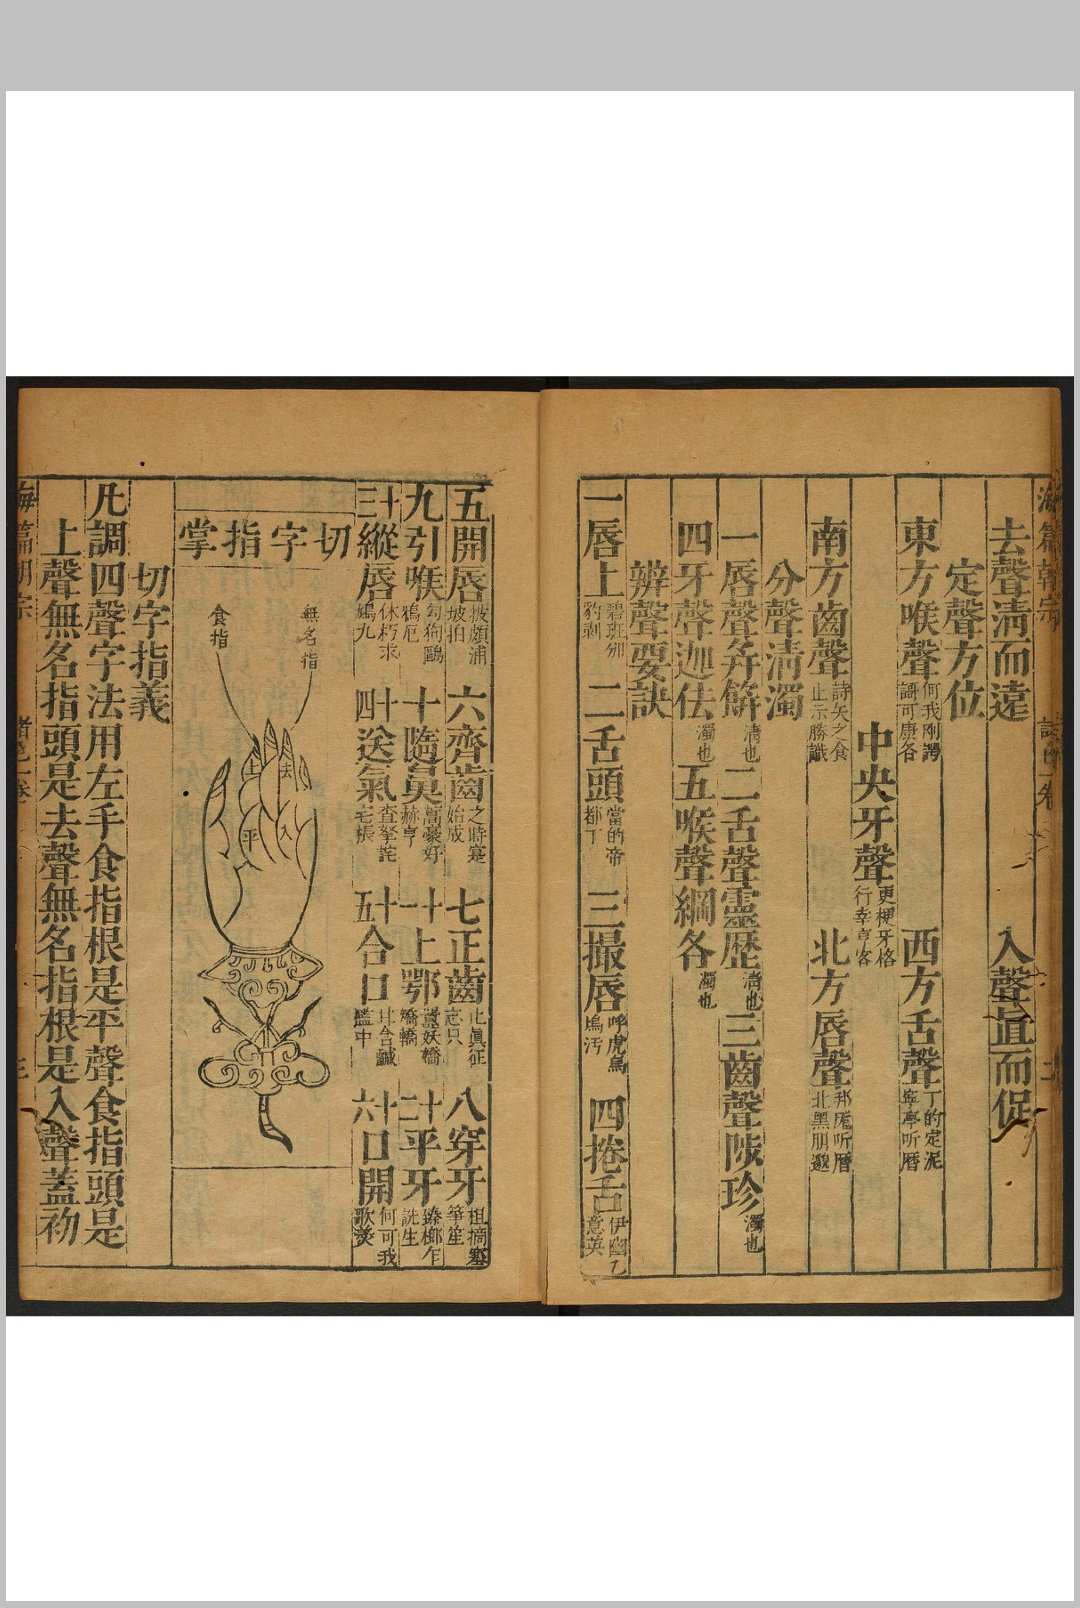 去聲清而遠　入聲直而促
定聲方位
東方喉聲何我剛諤謌可康各　西方舌聲丁的定泥寧亭听曆
中央牙聲更梗牙格行幸亨客
南方齒聲詩矢之食止示勝識　北方唇聲邦尨听曆北黑朋邈
分聲清濁
一唇聲幷餠清也　二舌聲靈歷清也　三齒聲陟珍濁也
四牙聲迦佉濁也　五喉聲綱各濁也
辨聲要訣
一唇上碧班邠豹剥　二舌頭當的帝都丁　三撮唇呼虎烏塢汚　四捲舌伊幽乙意英
五開唇披頗浦坡拍　六齊齒之時寔始成　七正齒止眞征志只　八穿牙徂摘塞笋笙
九引喉勾狗鷗鴉厄　十隨鼻蒿豪好赫亨　十一上鄂妖嬌矯轎　十二平牙臻櫛乍詵生
十三縱唇休朽求鳩九　十四送氣查拏詫宅棖　十五合口甘含鹹監中　十六口開何可我歌羨
切字指掌
無名指
食指
上
去
平
入
切字指義
凡調四聲字法用左手食指根是平聲食指頭是
上聲無名指頭是去聲無名指根是入聲蓋初